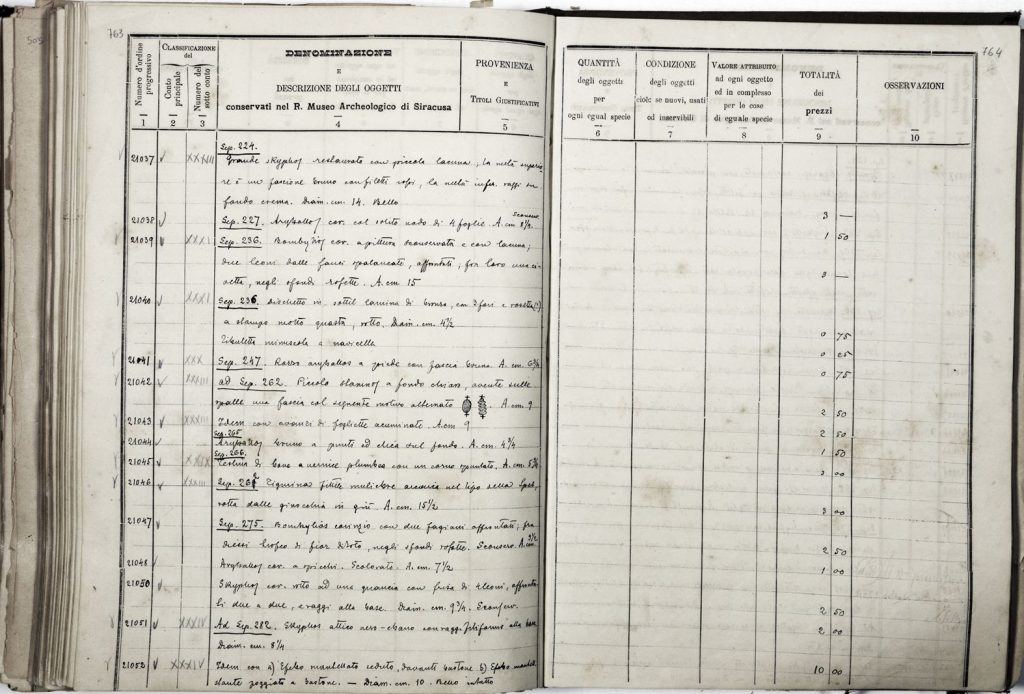 505
763
Numero d'ordine progressivo
CLASSIFICAZIONE del
Conto principale
Numero del sotto conto
DENOMINAZIONE
E
DESCRIZIONE DEGLI OGGETTI
conservati nel R. Museo Archeologico di Siracusa
PROVENIENZA
E
TITOLI GIUSTIFICATIVI
1 2 3 4 5
Sep. 224.
21037 XXXIII Grande skyphos restaurato con piccola lacuna, la metà superio
re è un fascione bruno con filetti rossi, la metà infer. raggi su
fondo crema. Diam. cm. 14. Bello
21038 Sep. 227. Aryballos cor. col solito nodo di 4 foglie. A. cm
21039 XXXI Sep. 236. Bombylios cor. a pittura sconservata e con lacuna;
due leoni dalle fauci spalancate, affrontati; fra loro una ci
vetta, negli sfondi rosette. A. cm. 15
21040 XXXI Sep. 236. Dischetto in sottil lamina di bronzo, con 2 fori e rosetta (?)
a stampo molto guasta, rotto. Diam. cm. 4½
Fibuletta minuscola a navicella
21041 XXX Sep. 247. Rozzo aryballos a piede con fascia bruna. A. cm. 6¾
21042 XXXIII ad Sep. 262. Piccolo stamnos a fondo chiaro, avente sulle
spalle una fascia col seguente motivo alternato . A. cm 9
21043 XXXIII Idem con avanzi di fogliette acuminate. A. cm 9
Sep. 265
21044 Aryballos bruno a punto ed creta sul fondo. A. cm. 4¾
Sep. 266.
21045 XXIX Testina di bove a vernice plumbea con un corno spuntato. A. cm. 5¾
21046 XXXIII Sep. 262 Figurina fittile muliebre arcaica nel tipo della Spes,
rotta dalle ginocchia in giù. A. cm. 15½
21047 Sep. 275. Bombylios corinzio con due fagiani affrontati; fra
diessi trofeo di fior di loto, negli sfondi rosette. Sconserv. A. cm.
21048 Aryballos cor. a spicchi. Scolorato. A. cm. 7½
21050 Skyphos cor. rotto ad una guancia con fascia di 4 leoni, affronta
ti due a due, e raggi alla base. Diam. cm. 9¾. Sconserv.
21051 XXXIV Ad Sep. 282. Skyphos attico nero-ebano con raggi filiformi alla base
Diam. cm. 8¼
21052 XXXIV Idem con a) Efebo mantellato seduto, davanti bastone b) Efebo mantel
stante poggiato a bastone. — Diam. cm. 10. Bello intatto
764
QUANTITÀ
degli oggetti
per
ogni egual specie
CONDIZIONE
degli oggetti
cioè: se nuovi, usati
od inservibili
VALORE ATTRIBUITO
ad ogni oggetto
ed in complesso
per le cose
di eguale specie
TOTALITÀ
dei
prezzi
OSSERVAZIONI
6 7 8 9 10
3 —
1 50
3 —
0 75
0 25
0 75
2 50
2 50
1 50
3 00
3 00
2 50
1 00
2 50
2 00
10 00